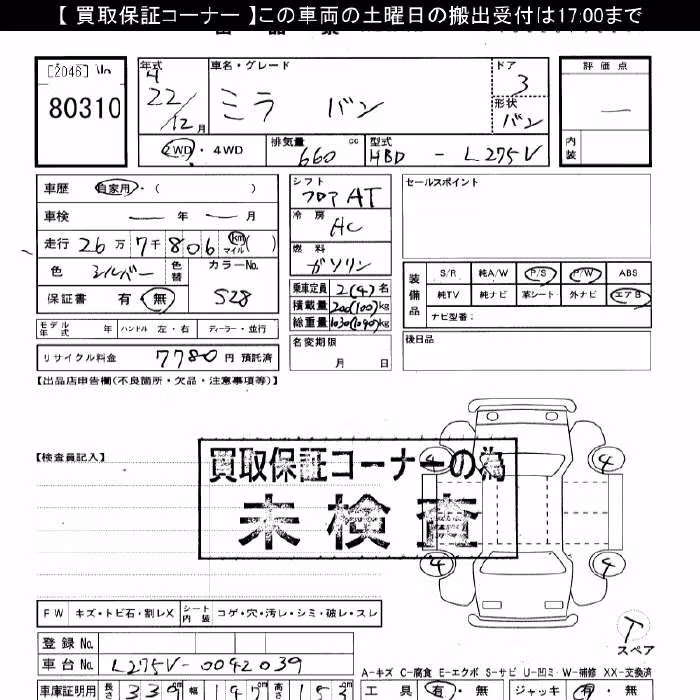 【 買取保証コーナー 】この車両の土曜日の搬出受付は17:00まで
[2046]
80310
年式 車名・グレード ドア 評価点
22/12月 ミラ バン 3
形状 バン
―
2WD・4WD 排気量 660 cc 型式 HBD - L275V
内装
車歴 自家用・( )
車検 ― 年 ― 月
走行 26万7千806 km マイル ( )
色 シルバー 色替 カラーNo. S28
保証書 有・無
モデル年式 年 ハンドル 左・右 ディーラー・並行
リサイクル料金 7780 円 預託済
シフト フロア AT
冷房 AC
燃料 ガソリン
乗車定員 2(4)名
積載量 200(100)kg
総重量 1030(1090)kg
名変期限 月 日
セールスポイント
装備品 S/R 純A/W P/S P/W ABS
純TV 純ナビ 革シート 外ナビ エアB
ナビ型番:
後日品
【出品店申告欄(不良箇所・欠品・注意事項等)】
【検査員記入】
買取保証コーナーの為
未検査
4 4
4 4
FW キズ・トビ石・割レX シート内装 コゲ・穴・汚レ・シミ・破レ・スレ
T
スペア
登録 No.
車台 No. L275V-0042039
A-キズ C-腐食 E-エクボ S-サビ U-凹ミ W-補修 XX-交換済
車庫証明用 長さ 339cm 幅 147cm 高さ 153cm
工具 有・無 ジャッキ 有・無